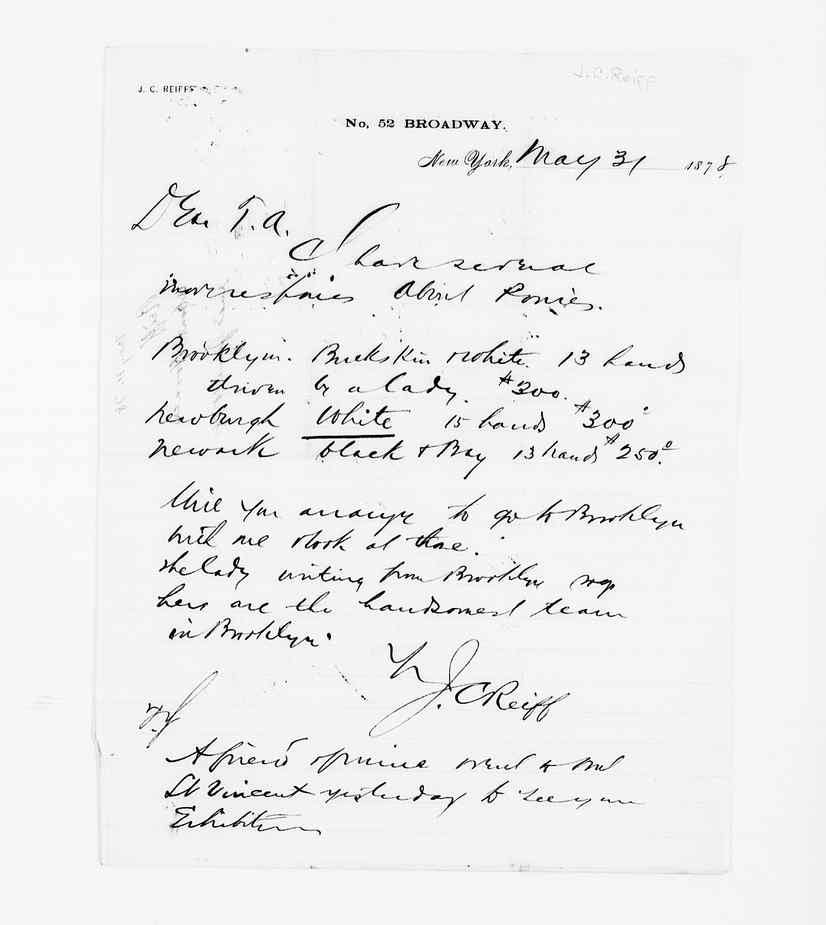 J. C. Reiff
J. C. REIFF
No, 52 BROADWAY.
New York, May 31 1878
Dear T.A.
I have several
about Ponies.
Brooklyn. Buckskin & White. 13 hands
driven by a lady. $300.
Newburgh White 15 hands $300
Newark black & Bay 13 hands $250.
Will you arrange to go to Brooklyn
with me & look at these.
The lady writing from Brooklyn says
hers are the handsomest team
in Brooklyn.
J. C Reiff
A friend of mine went to
St Vincent yesterday to see your
Exhibition